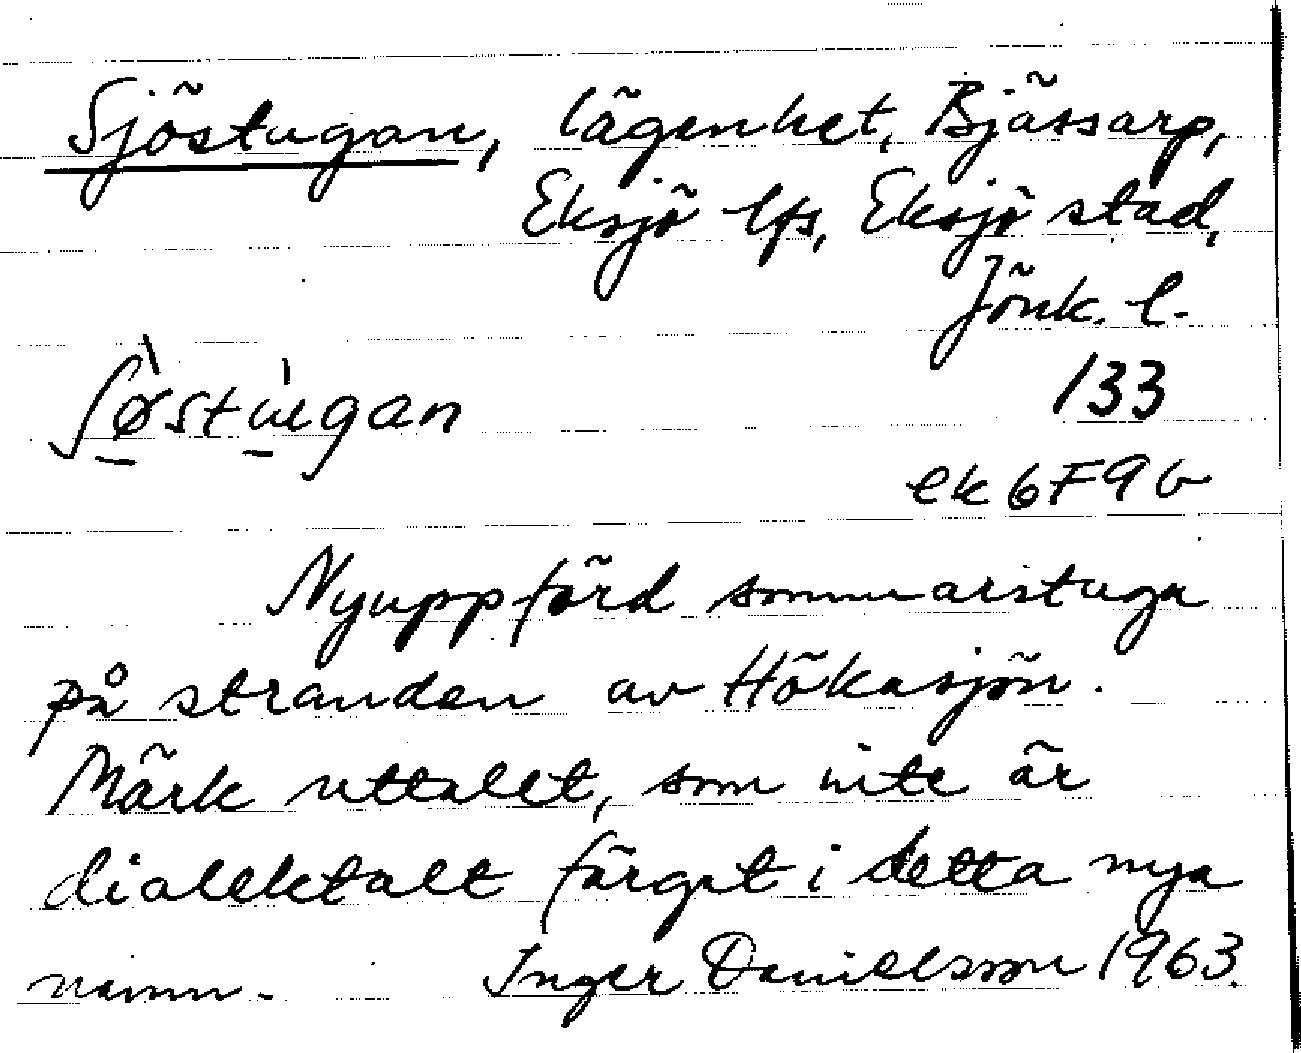 Sjöstugan, lägenhet, Bjässarp,
Eksjö lfs, Eksjö stad,
Jönk. l.
133
ek 6F9b
Nyuppförd sommarstuga
på stranden av Hökasjön.
Märk uttalet, som inte är
dialektalt färgat i detta nya
namn.
Inger Danielsson 1963.